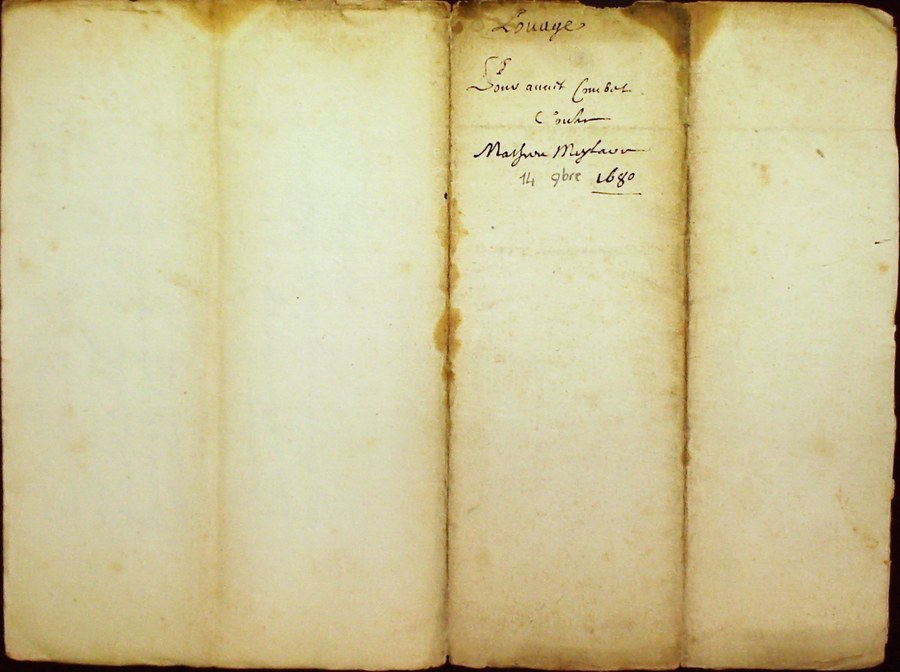 Louage
Pour auuit Combet
Contre
Mathieu Meylaur
14 9bre 1680